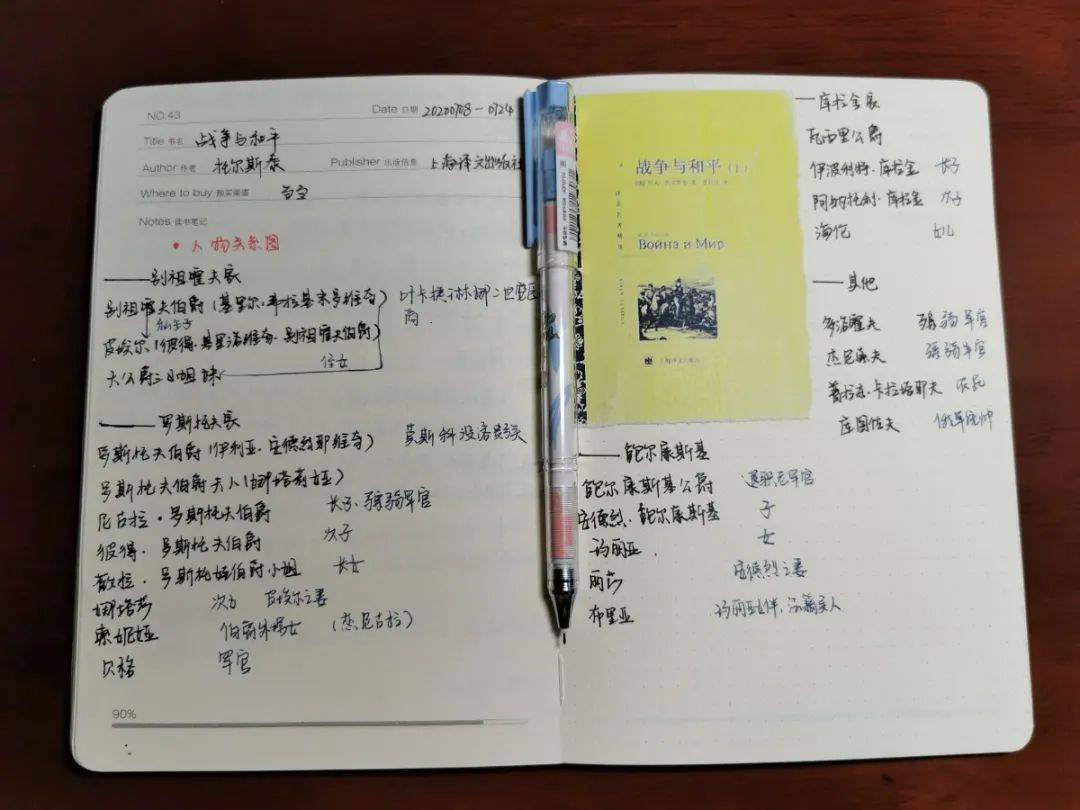 NO.43
Date 日期 20200708-0724
Title 书名 战争与和平
Author 作者 托尔斯泰 Publisher 出版信息 上海译文出版社
Where to buy 购买渠道
Notes 读书笔记
• 人物关系图
——别祖霍夫家
别祖霍夫伯爵(基里尔·弗拉基米罗维奇) 叶卡捷琳娜二世
私生子
皮埃尔(彼得·基里洛维奇·别祖霍夫伯爵)
大公爵三姐妹
侄女
——罗斯托夫家
罗斯托夫伯爵(伊利亚·安德烈耶维奇) 莫斯科没落贵族
罗斯托夫伯爵夫人(娜塔莉娅)
尼古拉·罗斯托夫伯爵 长子、骠骑军官
彼得·罗斯托夫伯爵 次子
薇拉·罗斯托娃伯爵小姐 长女
娜塔莎 次女 皮埃尔之妻
索妮娅 伯爵外甥女 (恋尼古拉)
贝格 军官
90%
战争与和平(上)
Война и Мир
上海译文出版社
——库拉金家
瓦西里公爵
伊波利特·库拉金 长子
阿纳托利·库拉金 次子
海伦 女儿
——其他
多洛霍夫 骠骑军官
杰尼索夫 骠骑军官
普拉东·卡拉塔耶夫 农民
库图佐夫 俄军统帅
——鲍尔康斯基
鲍尔康斯基公爵 退职老军官
安德烈·鲍尔康斯基 子
玛丽亚 女
丽莎 安德烈之妻
布里亚 玛丽亚女伴,法籍